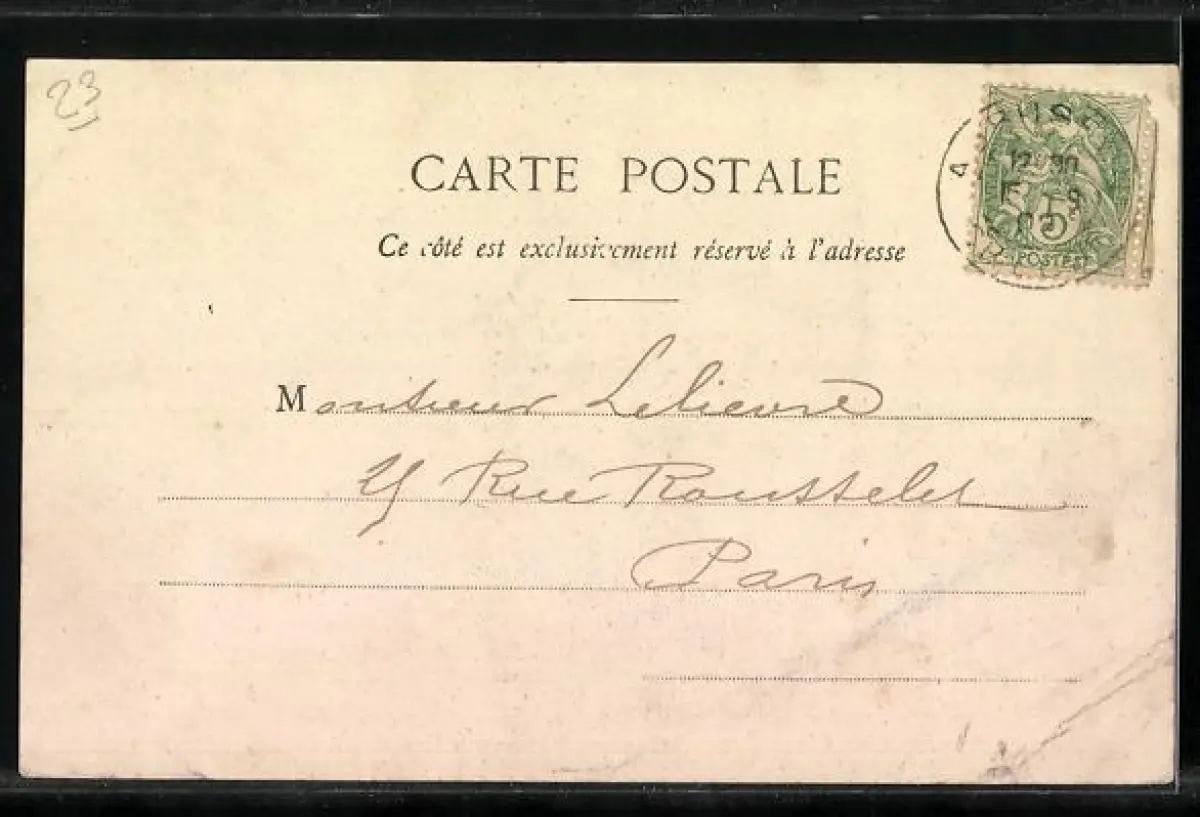 23
CARTE POSTALE
Ce côté est exclusivement réservé à l'adresse
Monsieur Lelievre
25 Rue Rousselet
Paris
5
POSTES